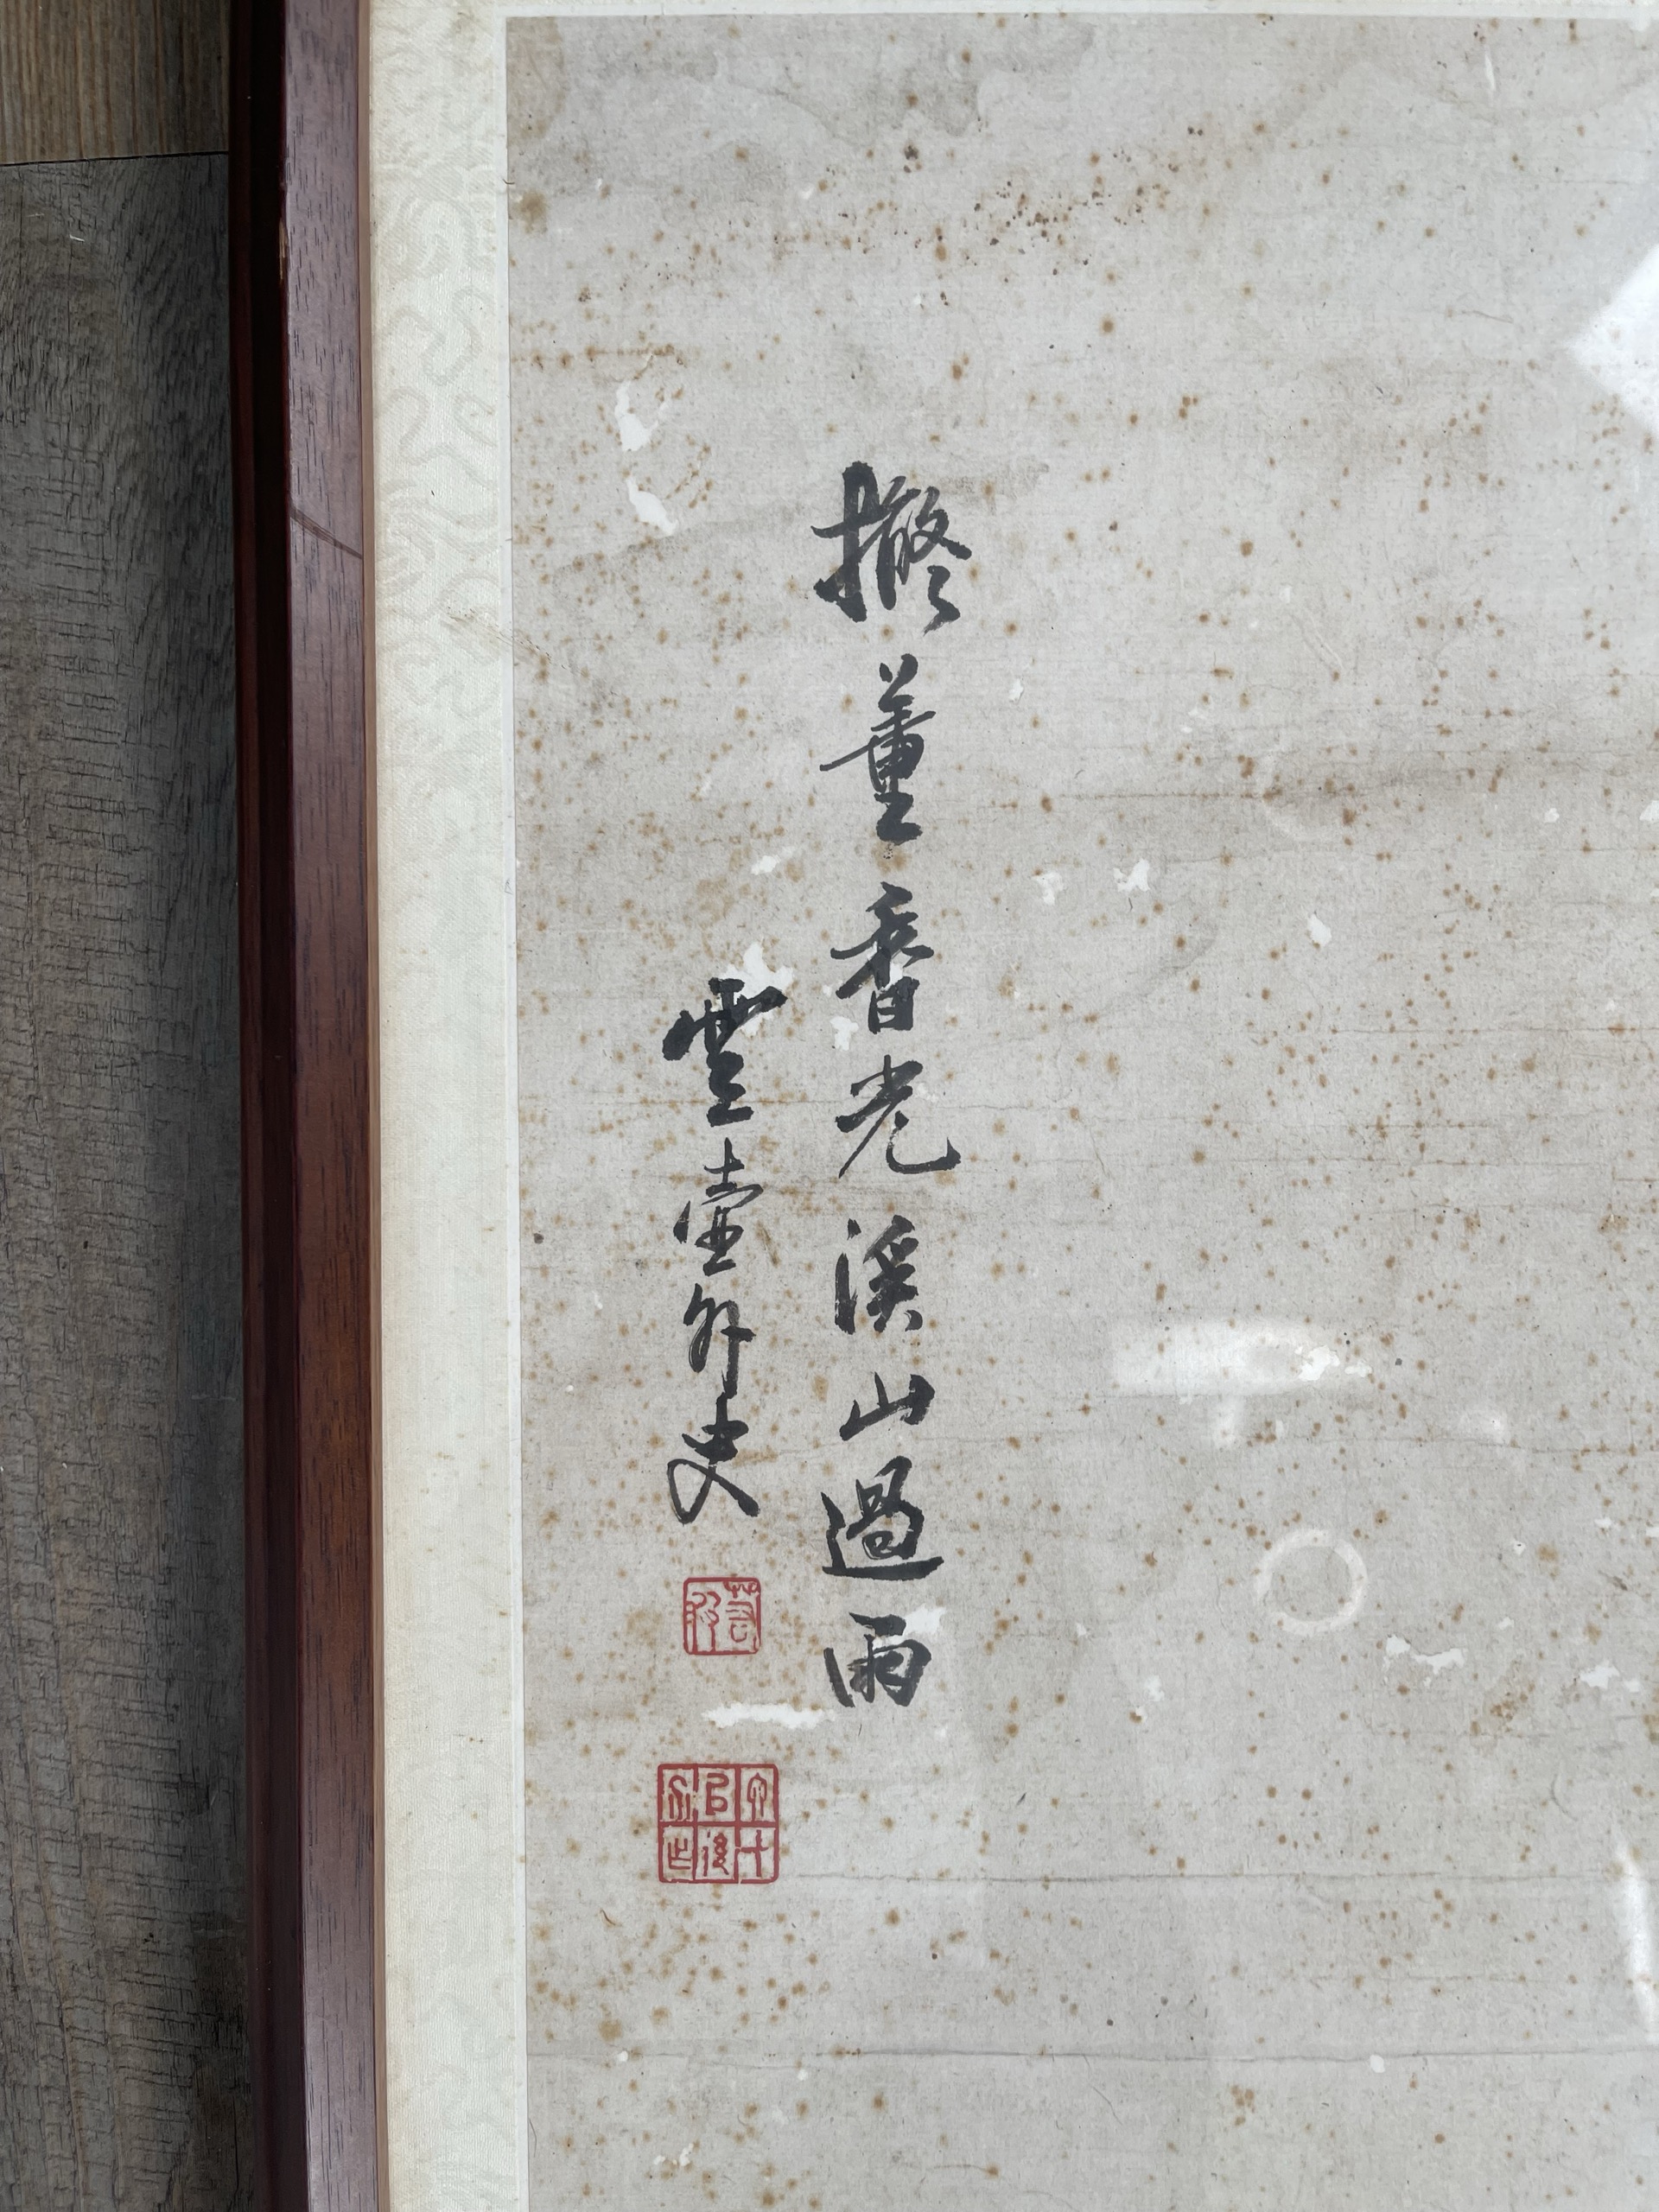 擬董香光溪山過雨
雲壺外史